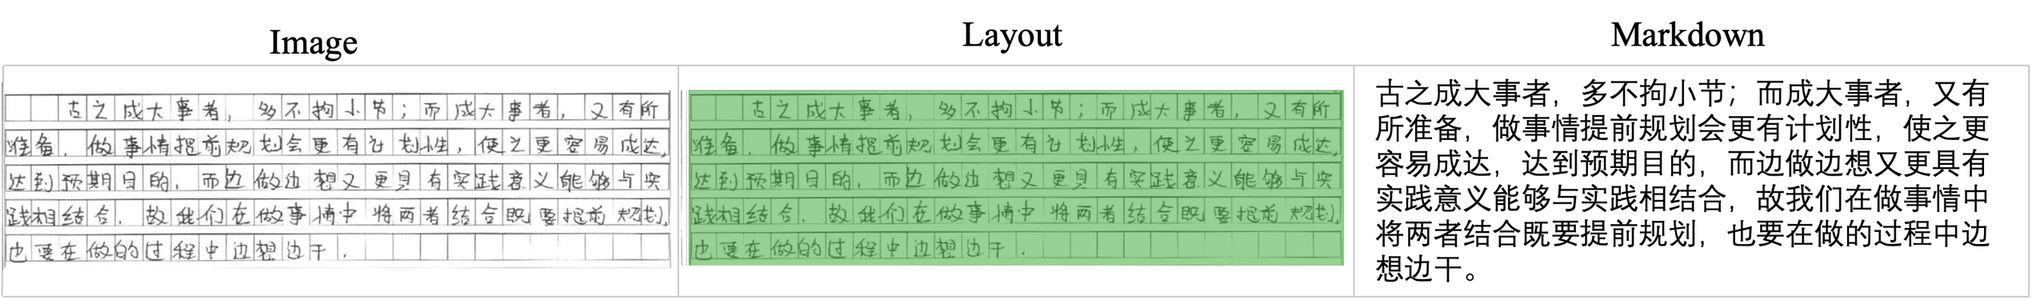 Image
Layout
Markdown
古之成大事者，多不拘小节；而成大事者，又有所
准备，做事情提前规划会更有计划性，使之更容易成达，
达到预期目的，而边做边想又更具有实践意义能够与实
践相结合，故我们在做事情中将两者结合既要提前规划，
也要在做的过程中边想边干.
古之成大事者，多不拘小节；而成大事者，又有所
准备，做事情提前规划会更有计划性，使之更容易成达，
达到预期目的，而边做边想又更具有实践意义能够与实
践相结合，故我们在做事情中将两者结合既要提前规划，
也要在做的过程中边想边干.
古之成大事者，多不拘小节；而成大事者，又有
所准备，做事情提前规划会更有计划性，使之更
容易成达，达到预期目的，而边做边想又更具有
实践意义能够与实践相结合，故我们在做事情中
将两者结合既要提前规划，也要在做的过程中边
想边干。